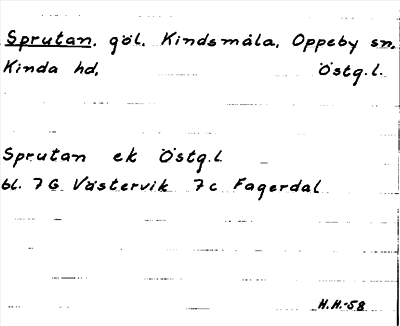 Sprutan. göl. Kindsmåla. Oppeby sn.
Kinda hd. Östg.l.
Sprutan ek Östg.l
bl. 7G Västervik 7c Fagerdal
H.H.-58